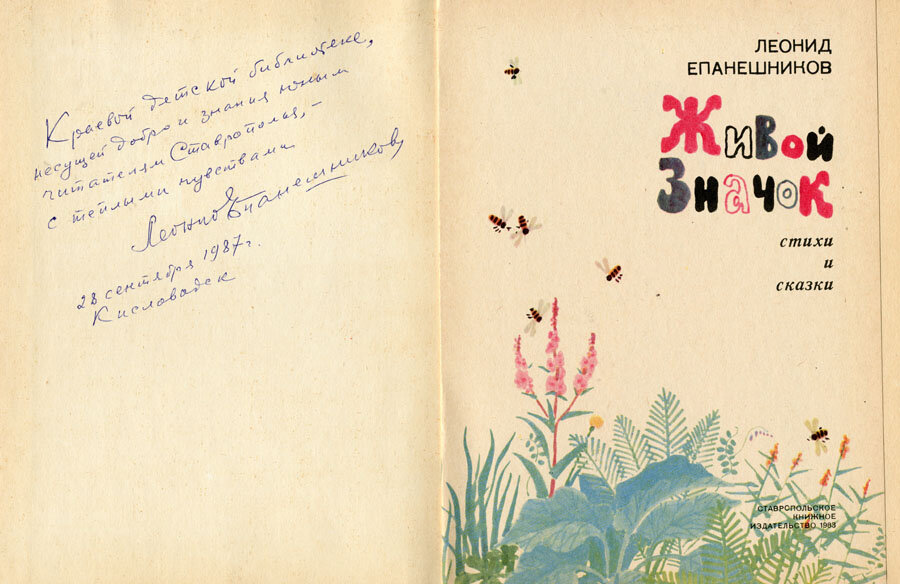 Краевой детской библиотеке,
несущей добро и знания юным
читателям Ставрополья, –
с теплыми чувствами
Леонид Епанешников
28 сентября 1987 г.
Кисловодск
ЛЕОНИД
ЕПАНЕШНИКОВ
Живой
Значок
стихи
и
сказки
СТАВРОПОЛЬСКОЕ
КНИЖНОЕ
ИЗДАТЕЛЬСТВО 1983